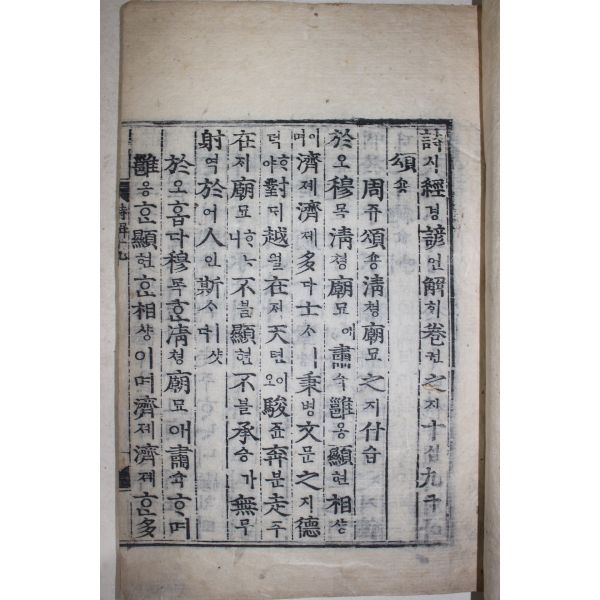 詩시經경諺언解ᄒᆡ卷권之지十십九구
頌숑
周쥬頌숑淸쳥廟묘之지什습
於오穆목淸쳥廟묘애肅슉雝옹顯현相샹
이며濟졔濟졔多다士ᄉᆞㅣ秉병文문之지德
덕ᄒᆞ야對ᄃᆡ越월在ᄌᆡ天텬이오駿쥰奔분走주
在ᄌᆡ廟묘ᄒᆞᄂᆞ니不블顯현不블承승가無무
射역於어人인斯ᄉᆞ샷다
於오홉다穆목ᄒᆞᆫ淸쳥廟묘애肅슉ᄒᆞ며
雝옹ᄒᆞᆫ顯현ᄒᆞᆫ相샹이며濟졔濟졔ᄒᆞᆫ多
詩解十九